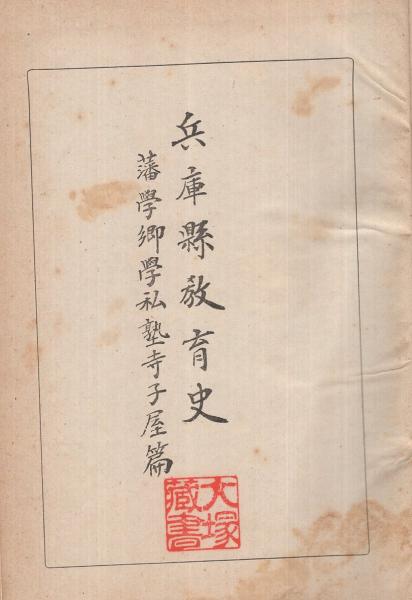 兵庫縣教育史
藩學鄉學私塾寺子屋篇
大塚藏書